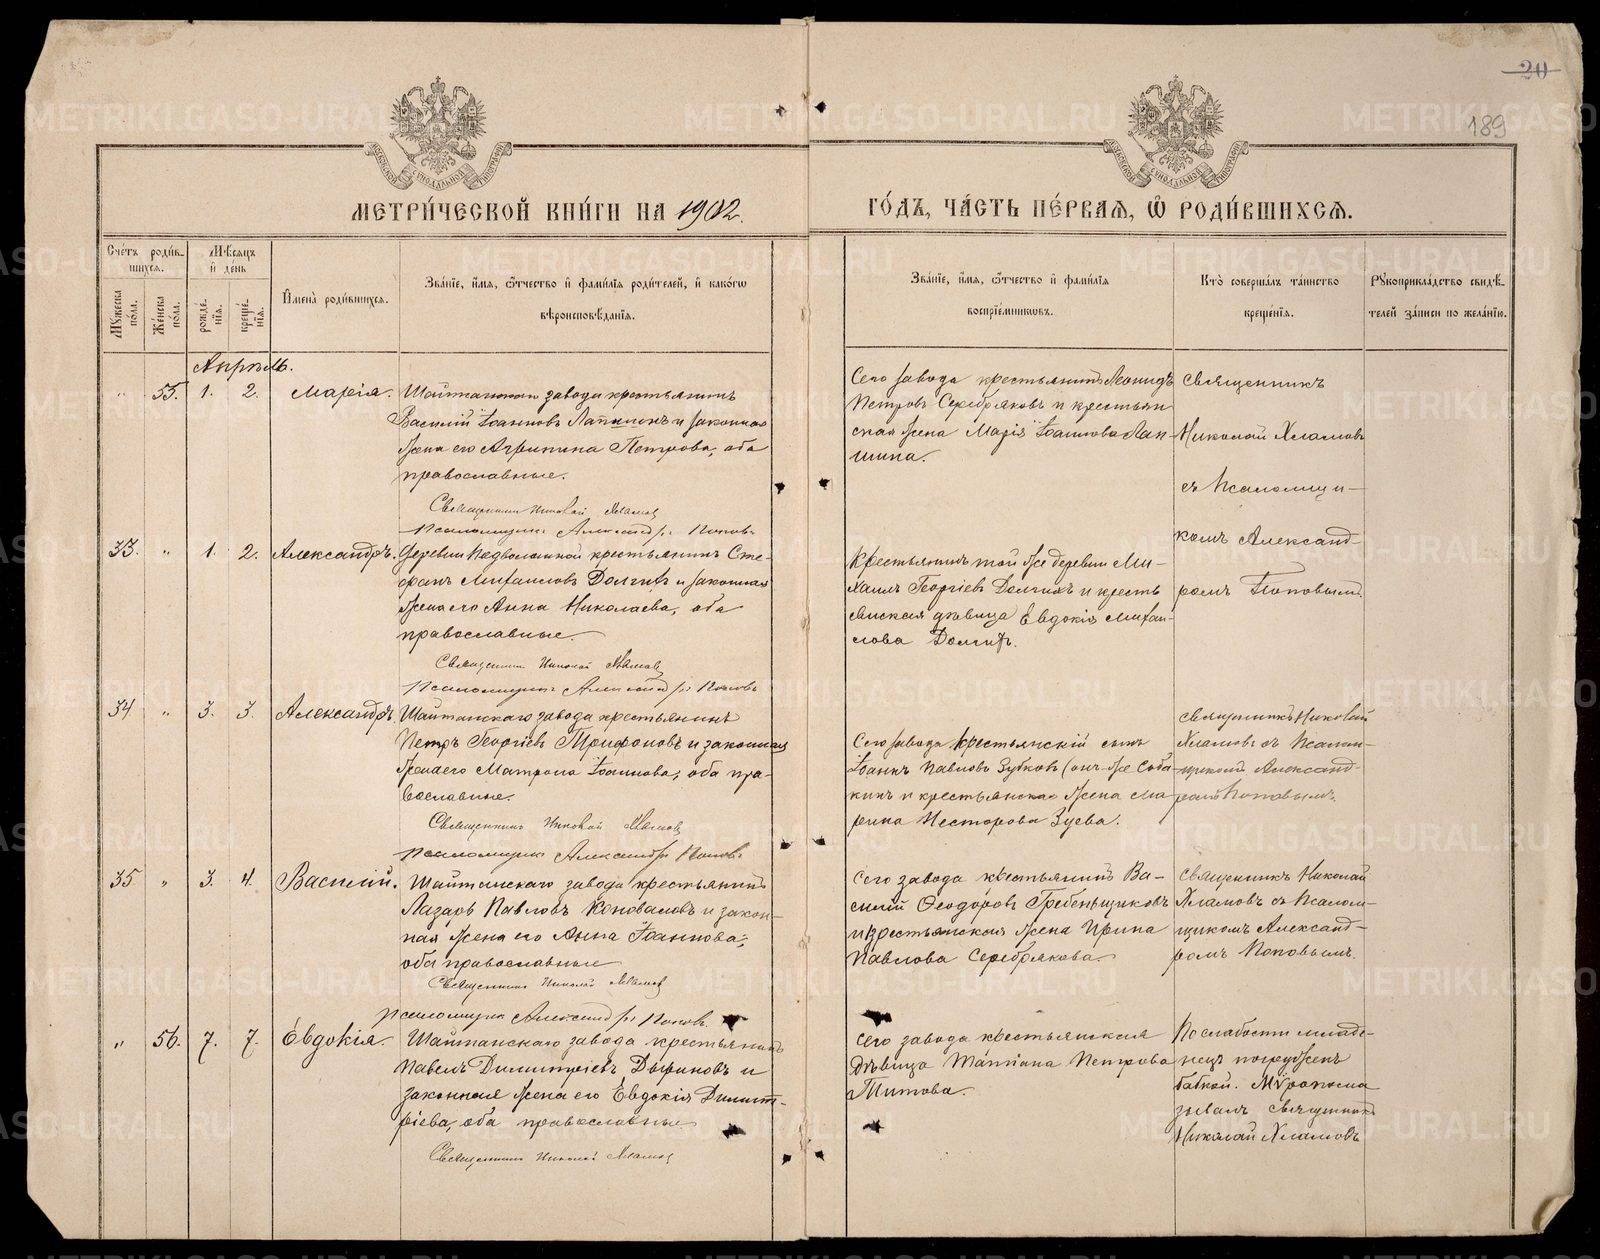 20
189
МЕТРИ́ЧЕСКОЙ КНИ́ГИ НА 1902
ГО́ДЪ, ЧА́СТЬ ПЕ́РВАѦ, Ѽ РОДИ́ВШИХСѦ.
Сче́тъ роди́в-
шихсѧ.
Мꙋжеска по́ла.
Же́нска по́ла.
Мѣ́сѧцъ
и҆ де́нь
рожде́нїѧ.
креще́нїѧ.
И҆мена̀ роди́вшихсѧ.
Зва́нїе, и҆́мѧ, ѻ҆́тчество и҆ фами́лїѧ роди́телей, и҆ како́гѡ
вѣроисповѣ́данїѧ.
Зва́нїе, и҆́мѧ, ѻ҆́тчество и҆ фами́лїѧ
воспрїе́мникѡвъ.
Кто̀ соверша́лъ та́инство
креще́нїѧ.
Рꙋкоприкла́дство свидѣ́-
телей за́писи по жела́нїю.
Апрѣль.
" 55. 1. 2. Марія.
Шайтанскаго завода крестьянинъ
Василій Іоанновъ Лапшинъ и законная
жена его Агрипина Петрова, оба
православные.
Священникъ Николай Хламовъ
Псаломщикъ Александръ Поповъ
Сего завода крестьянинъ Леонидъ
Петровъ Серебряковъ и крестьян
ская жена Марія Іоаннова Лап
шина.
Священникъ
Николай Хламовъ
съ Псаломщи-
комъ Александ-
ромъ Поповымъ.
33. " 1. 2. Александръ.
Деревни крестьянинъ Сте-
фанъ Михаиловъ Долгихъ и законная
жена его Анна Николаева, оба
православные.
Священникъ Николай Хламовъ
Псаломщикъ Александръ Поповъ
Крестьянинъ той же деревни Ми-
хаилъ Георгіевъ Долгихъ и кресть
янская дѣвица Евдокія Михаи-
лова Долгихъ.
34 " 3. 3. Александръ.
Шайтанскаго завода крестьянинъ
Петръ Георгіевъ Трифоновъ и законная
жена его Матрона Іоаннова, оба пра-
вославные.
Священникъ Николай Хламовъ
Псаломщикъ Александръ Поповъ
Сего завода крестьянскій сынъ
Іоаннъ Павловъ Зубковъ (онъ-же Соба
кинъ и крестьянская жена Ма
рина Несторова Зуева.
Священникъ Николай
Хламовъ съ Псалом-
щикомъ Александ-
ромъ Поповымъ.
35 " 3. 4. Василій.
Шайтанскаго завода крестьянинъ
Лазарь Павловъ Коноваловъ и закон-
ная жена его Анна Іоаннова,
оба православные
Священникъ Николай Хламовъ
Псаломщикъ Александръ Поповъ.
Сего завода крестьянинъ Ва-
силій Ѳеодоровъ Гребенщиковъ
и крестьянская жена Ирина
Павлова Серебрякова.
Священникъ Николай
Хламовъ съ Псалом-
щикомъ Александ-
ромъ Поповымъ.
" 56. 7. 7. Евдокія.
Шайтанскаго завода крестьянинъ
Павелъ Димитріевъ и
законная жена его Евдокія Димит-
ріева, оба православные
Священникъ Николай Хламовъ
Сего завода крестьянская
дѣвица Татіана Петрова
Титова.
По слабости младе-
нецъ погруженъ
бабкой. Мѵропома
зывалъ Священникъ
Николай Хламовъ
METRIKI.GASO-URAL.RU